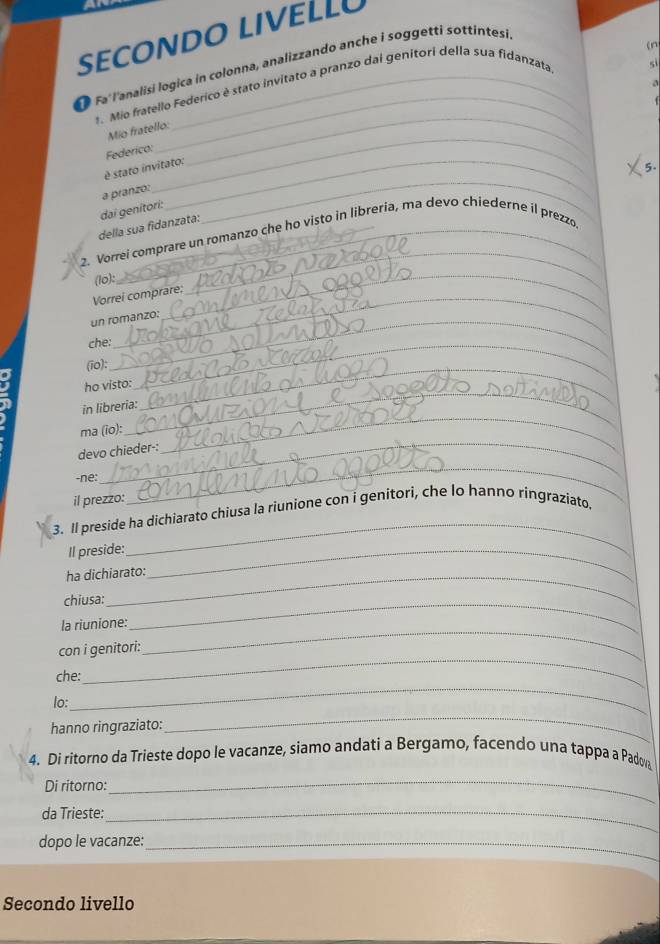 SECONDO LIVELLO
1 Fa' l'analisi logica in colonna, analizzando anche i soggetti sottintesi.
1. Mio fratello Federico è stato invitato a pranzo dai genitori della sua fidanzata.
Mio fratello:
Federico:
è stato invitato:
a pranzo:
dai genitori:
della sua fidanzata:
2. Vorrei comprare un romanzo che ho visto in libreria, ma devo chiederne il prezzo.
(Io): soggetto sottinteso
Vorrei comprare: predicato verbale
un romanzo: complemento oggetto
che: relativa
(io): soggetto sottinteso
ho visto: predicato verbale
in libreria: complemento di luogo
ma (io): congiunzione e soggetto sottinteso
devo chieder-: predicato verbale
-ne:
il prezzo: complemento oggetto
3. Il preside ha dichiarato chiusa la riunione con i genitori, che lo hanno ringraziato.
Il preside:
ha dichiarato:
chiusa:
la riunione:
con i genitori:
che:
lo:
hanno ringraziato:
4. Di ritorno da Trieste dopo le vacanze, siamo andati a Bergamo, facendo una tappa a Padova
Di ritorno:
da Trieste:
dopo le vacanze:
Secondo livello
5.